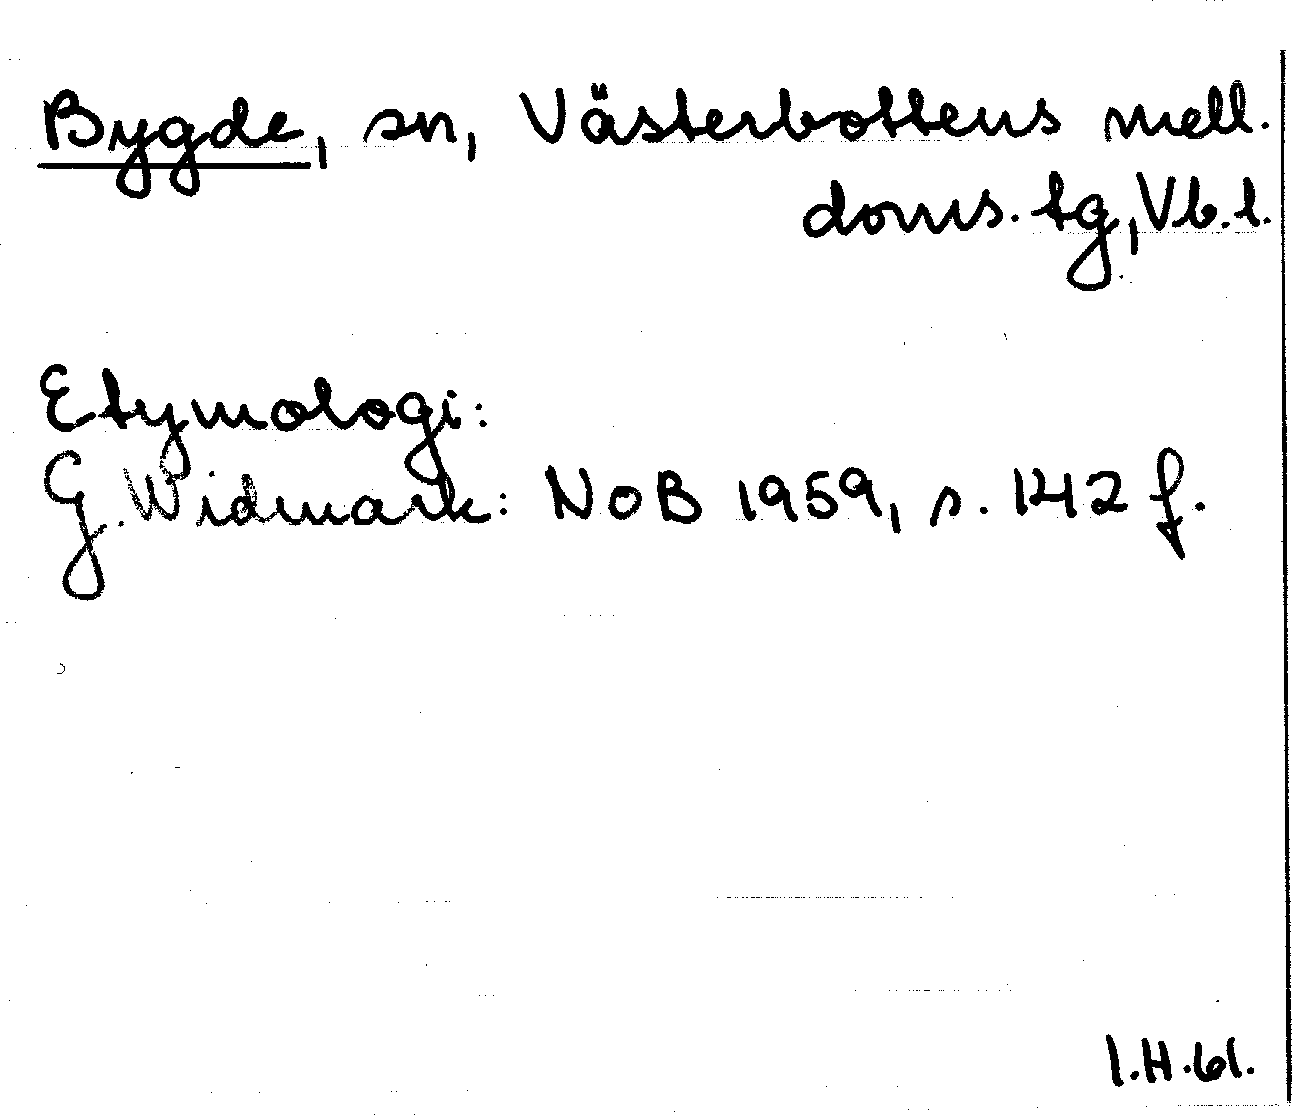 Bygde, sn, Västerbottens mell.
doms. tg, Vb. l.
Etymologi:
G. Widmark: NoB 1959, s. 142 f.
I.H.61.